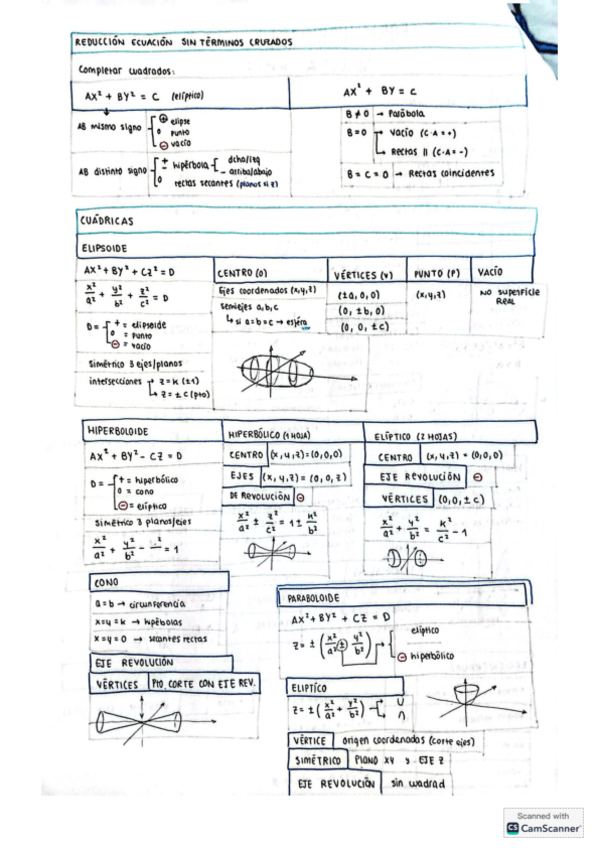 REDUCCIÓN ECUACIÓN SIN TÉRMINOS CRUZADOS
Completar cuadrados:
AX² + BY² = C (elíptico)
AX² + BY = C
AB mismo signo
⊕ elipse
0 punto
⊖ vacío
AB distinto signo
± hipérbola
dcha/izq
arriba/abajo
0 rectas secantes (planos si z)
B ≠ 0 → Parábola
B = 0 → vacío (C·A = +)
↳ Rectas || (C·A = -)
B = C = 0 → Rectas coincidentes
CUÁDRICAS
ELIPSOIDE
AX² + BY² + CZ² = D
x²/a² + y²/b² + z²/c² = D
D =
+ = elipsoide
0 = punto
⊖ = vacío
Simétrico 3 ejes/planos
intersecciones
z = k (±1)
z = ± c (pto)
CENTRO (O)
Ejes coordenados (x,y,z)
Semiejes a, b, c
↳ si a = b = c → esfera
VÉRTICES (V)
(±a, 0, 0)
(0, ±b, 0)
(0, 0, ±c)
PUNTO (P)
(x,y,z)
VACÍO
NO superficie
REAL
HIPERBOLOIDE
AX² + BY² - CZ = D
D =
+ = hiperbólico
0 = cono
⊖ = elíptico
Simétrico 3 planos/ejes
x²/a² + y²/b² - = 1
HIPERBÓLICO (1 HOJA)
CENTRO (x,y,z) = (0,0,0)
EJES (x,y,z) = (0,0,z)
DE REVOLUCIÓN ⊖
x²/a² ± z²/c² = 1 ± k²/b²
ELÍPTICO (2 HOJAS)
CENTRO (x,y,z) = (0,0,0)
EJE REVOLUCIÓN ⊖
VÉRTICES (0,0,±c)
x²/a² + y²/b² = k²/c² - 1
CONO
a = b → circunferencia
x=y = k → hipérbolas
x = y = 0 → secantes rectas
EJE REVOLUCIÓN
VÉRTICES PTO. CORTE CON EJE REV.
PARABOLOIDE
AX² + BY² + CZ = D
z = ± (x²/a² ± y²/b²)
elíptico
⊖ hiperbólico
ELIPTÍCO
z = ± (x²/a² + y²/b²)
∪
∩
VÉRTICE origen coordenadas (corte ejes)
SIMÉTRICO PLANO XY y EJE Z
EJE REVOLUCIÓN sin cuadrad
Scanned with
CS CamScanner